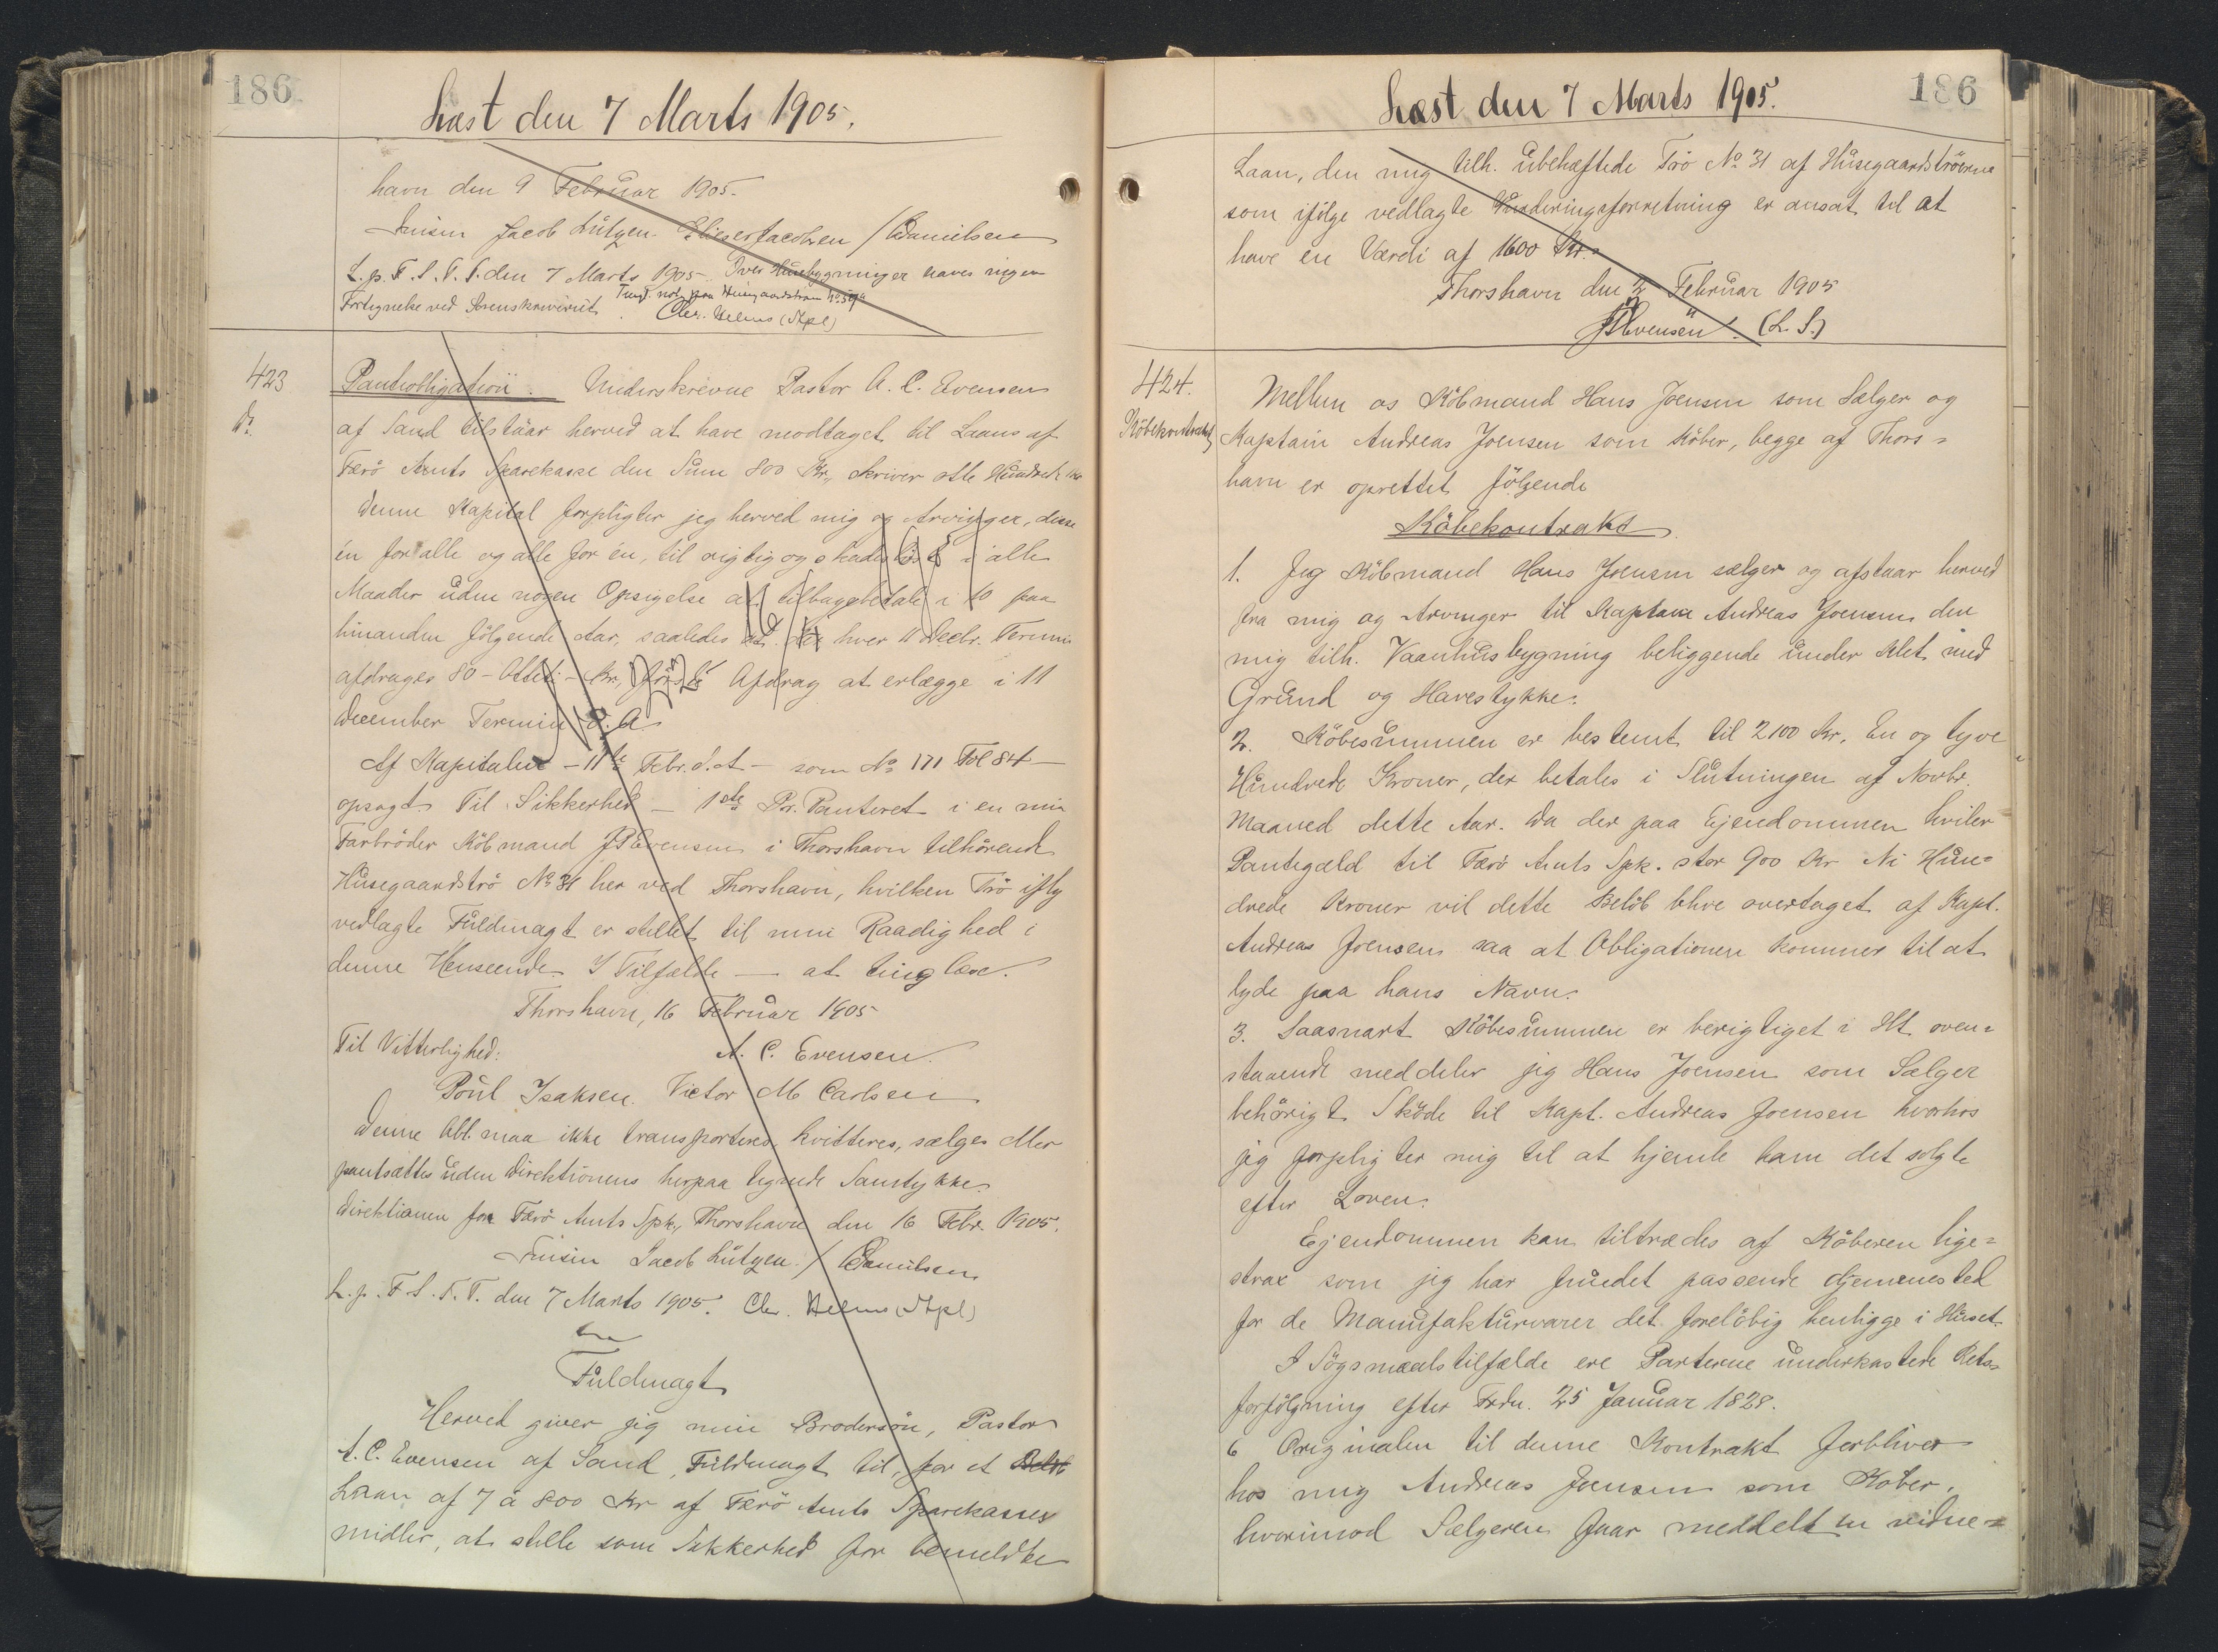 186
Læst den 7 Marts 1905.
havn den 9 Februar 1905.
Jacob Lützen. Elieser Jacobsen / Danielsen
L. p. F. S. T. T. den 7 Marts 1905. Over Husebygninger haves ingen
Tingl. not. paa Husegaardstrøen No
Fortegnelse ved Sorenskriveriet. Chr. Helms (Stpl)
423
Do
Pantobligation. Underskrevne Pastor A. C. Evensen
af Sand tilstaar herved at have modtaget til Laans af
Færö Amts Sparekasse den Sum 800 Kr., skriver otte Hundrede Kr
Denne Kapital forpligter jeg herved mig og Arvinger, disse
én for alle og alle for én, til rigtig og skadeslöst i alle
Maader uden nogen Opsigelse at tilbagebetale i 10 paa
hinanden fölgende Aar, saaledes at der hver 11 Decbr. Termin
afdrages 80 - Otteti - Kr, förste Afdrag at erlægge i 11
December Termin d. A
Af Kapitalen - 11te Febr. d. A - som No 171 Fol 84 -
opsagt. Til Sikkerhed - 1ste Pr. Panteret i en min
Farbröder Köbmand J P Evensen i Thorshavn tilhörende
Husegaardströ No 31 her ved Thorshavn, hvilken Trö iflg
vedlagte Fuldmagt er stillet til min Raadighed i
denne Henseende. I Tilfælde - at tinglæse.
Thorshavn, 16 Februar 1905
Til Vitterlighed: A. C. Evensen.
Poul Isaksen. Victor M Carlsen
Denne Obl. maa ikke transporteres, kvitteres, sælges eller
pantsættes uden Direktionens herpaa tegnede Samtykke.
Direktionen for Færö Amts Spk., Thorshavn den 16 Febr. 1905.
Jacob Lützen. / Danielsen
L. p. F. S. T. T. den 7 Marts 1905. Chr. Helms (Stpl)
Fuldmagt
Herved giver jeg min Brodersön, Pastor
A. C. Evensen af Sand, Fuldmagt til, for et Belöb
Laan af 7 à 800 Kr af Færö Amts Sparekasses
midler, at stille som Sikkerhed for bemeldte
186
Læst den 7 Marts 1905.
Laan, den mig tilh. ubehæftede Trö No 31 af Husegaardströerne
som ifölge vedlagte Vurderingsforretning er ansat til at
have en Værdi af 1600 Kr.
Thorshavn den 2 Februar 1905
J P Evensen. (L. S.)
424.
Köbekontrakt
Mellem os Köbmand Hans Joensen som Sælger og
Kaptain Andreas Joensen som Köber, begge af Thors=
havn er oprettet fölgende
Köbekontrakt
1. Jeg Köbmand Hans Joensen sælger og afstaar herved
fra mig og Arvinger til Kaptain Andreas Joensen den
mig tilh. Vaanhusbygning beliggende under Klet med
Grund og Havestykke.
2. Köbesummen er bestemt til 2100 Kr. En og tyve
Hundrede Kroner, der betales i Slutningen af Novbr.
Maaned dette Aar. Da der paa Ejendommen hviler
Pantegæld til Færö Amts Spk. stor 900 Kr Ni Hun=
drede Kroner vil dette Belöb blive overtaget af Kapt.
Andreas Joensen saa at Obligationen kommer til at
lyde paa hans Navn.
3. Saasnart Köbesummen er berigtiget i Ht. oven=
staaende meddeler jeg Hans Joensen som Sælger
behörigt Sköde til Kapt. Andreas Joensen hvorhos
jeg forpligter mig til at hjemle ham det solgte
efter Loven.
Ejendommen kan tiltrædes af Köberen lige=
strax som jeg har fundet passende Gjemmested
for de Manufakturvarer det forelöbig henligge i Huset.
I Sögsmaalstilfælde ere Parterne underkastede Rets=
forfölgning efter Frdn. 25 Januar 1828.
6 Originalen til denne Kontrakt forbliver
hos mig Andreas Joensen som Köber,
hvorimod Sælgeren faar meddelt en vidne=